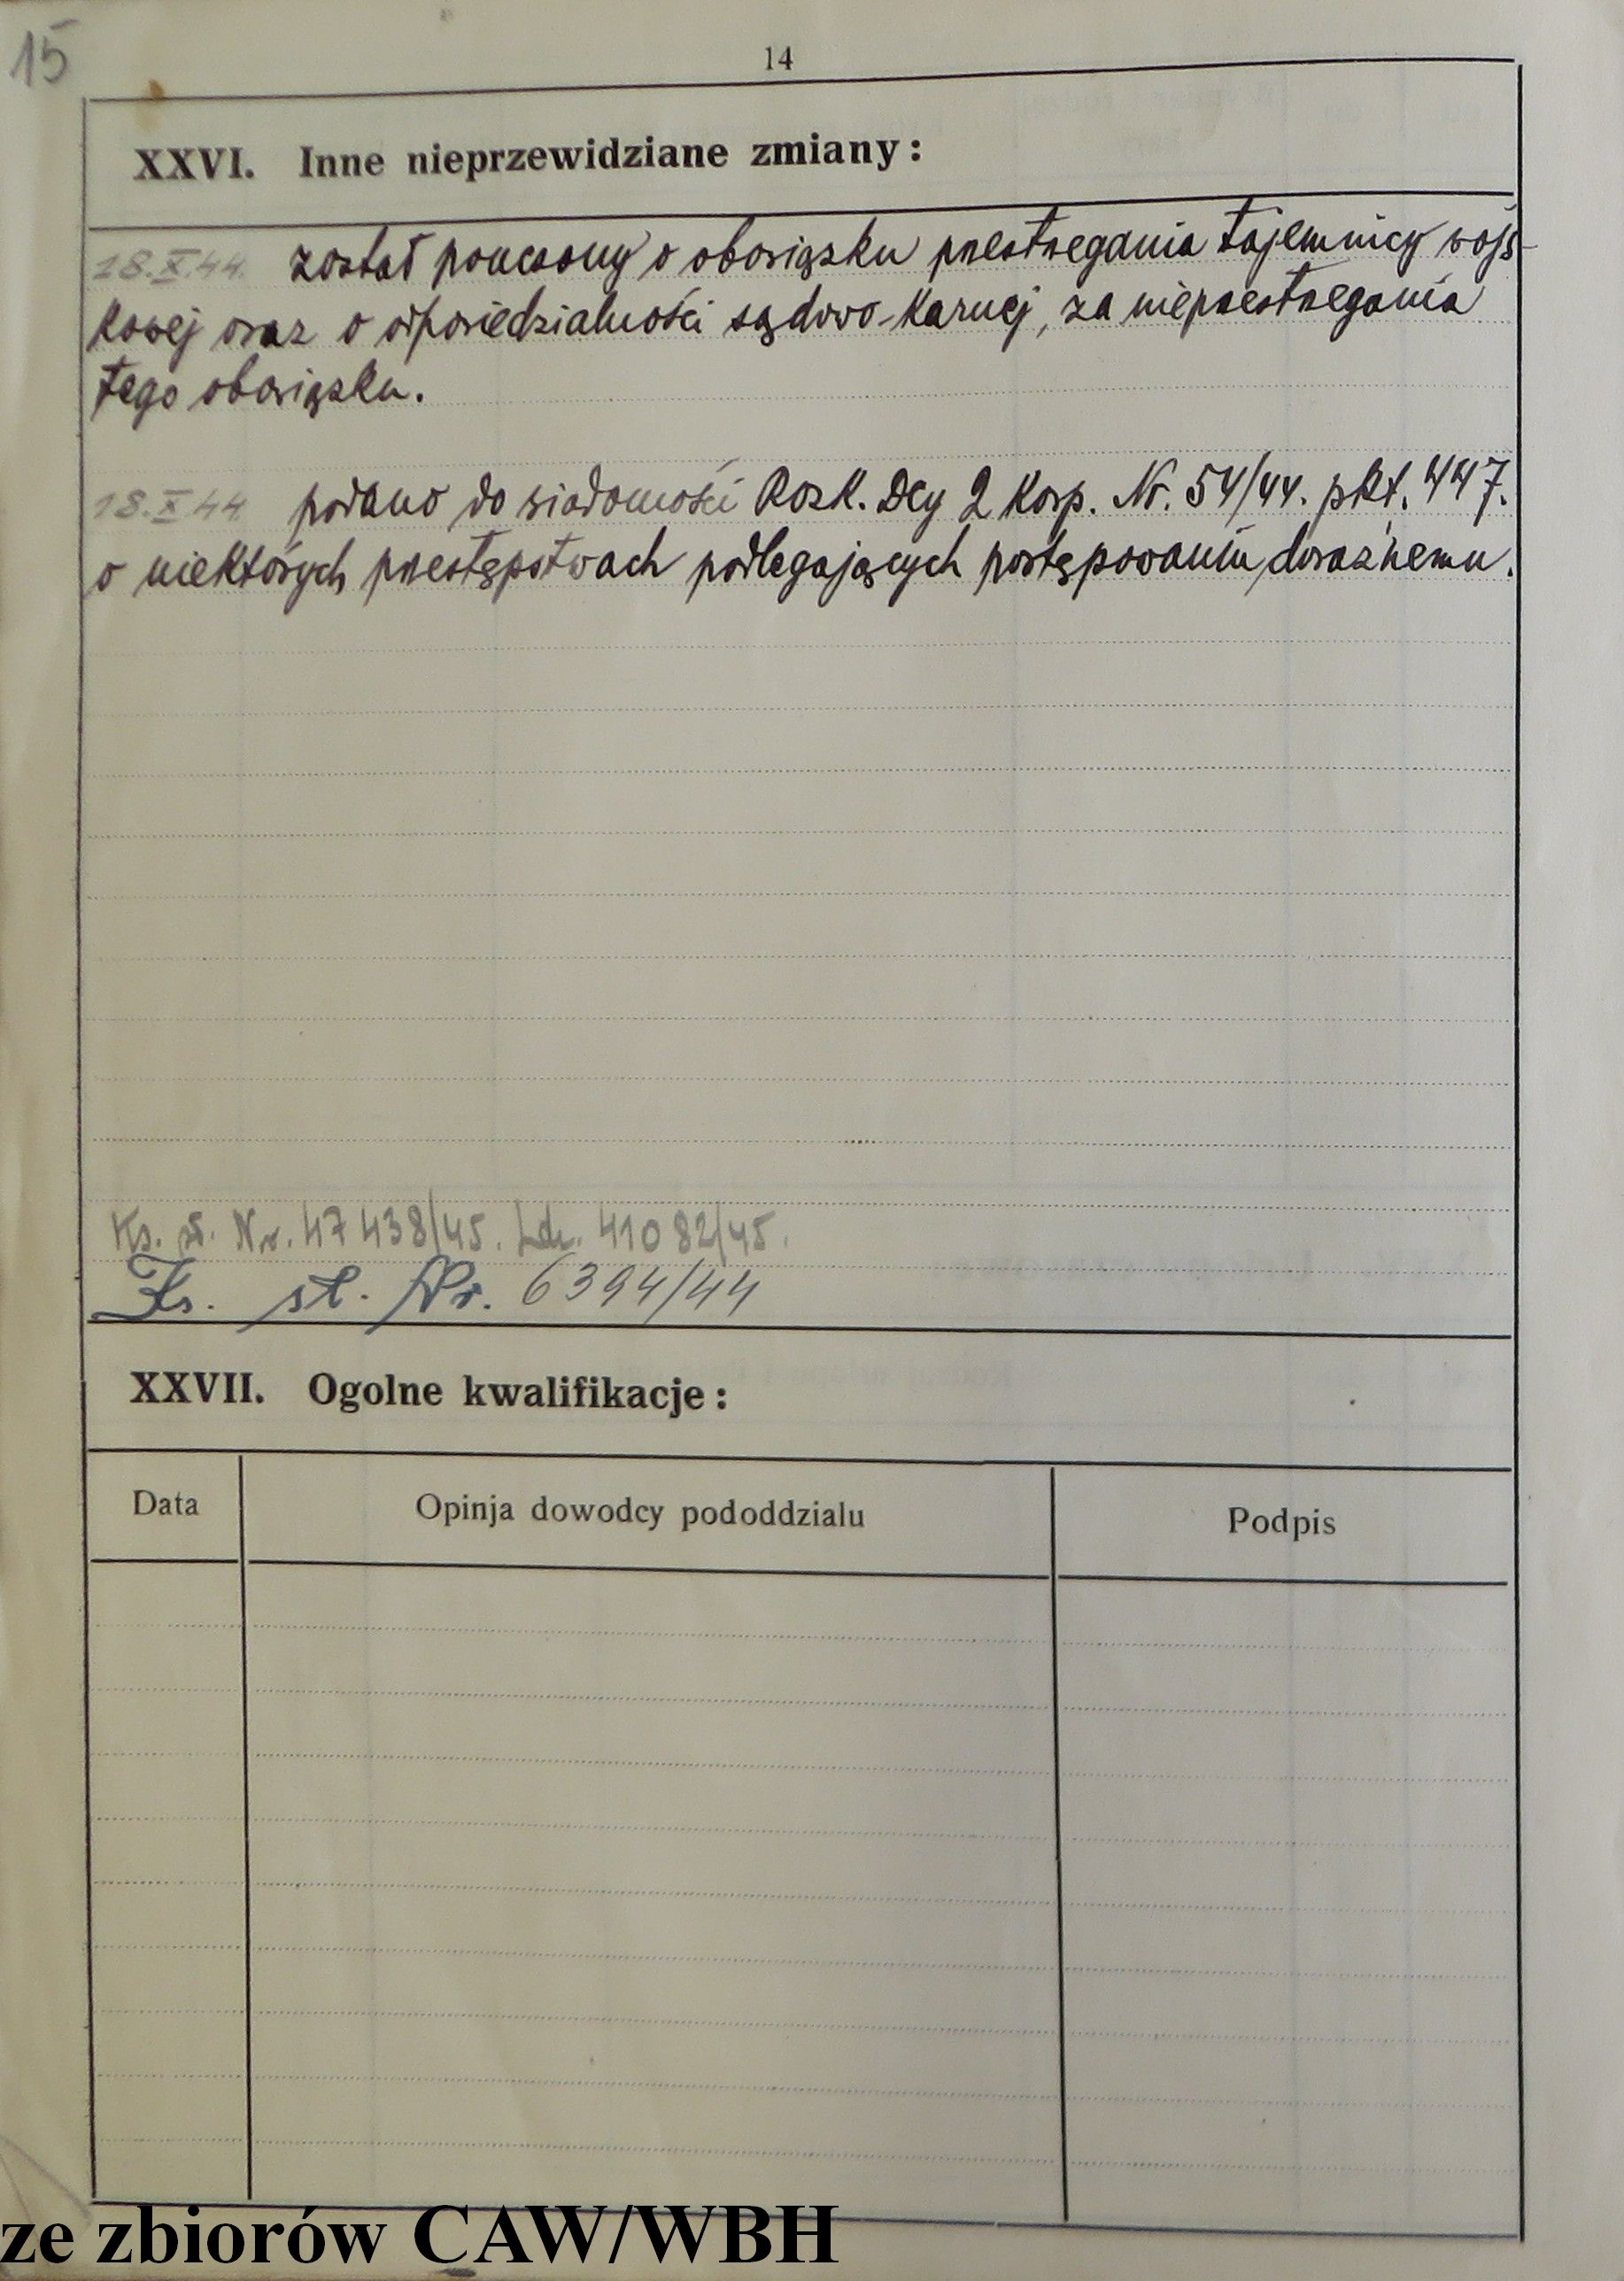 15
14
XXVI. Inne nieprzewidziane zmiany:
18.X.44. został pouczony o obowiązku przestrzegania tajemnicy wojs-
kowej oraz o odpowiedzialności sądowo-karnej, za nieprzestrzegania
tego obowiązku.
18.X.44 podano do wiadomości Rozk. Dcy 2 Korp. Nr. 54/44. pkt. 447.
o niektórych przestępstwach podlegających postępowaniu doraźnemu.
Ks. st. Nr. 47438/45. Ldz. 41082/45.
Ks. st. Nr. 6394/44
XXVII. Ogolne kwalifikacje:
Data Opinja dowodcy pododdzialu Podpis
ze zbiorów CAW/WBH